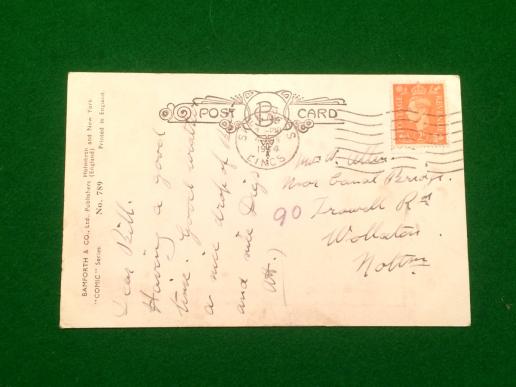 POST CARD
B
LINCS
POSTAGE REVENUE
BAMFORTH & CO., Ltd. Publishers Holmfirth and New York
(England).
"COMIC" Series. No. 789 Printed in England.
Dear Bill.
Having a good
time. Good weather
a nice drop of
and nice Digs
Mr W. Allen
Near Canal Bridge.
90 Trowell Rd
Wollaton
Nottm